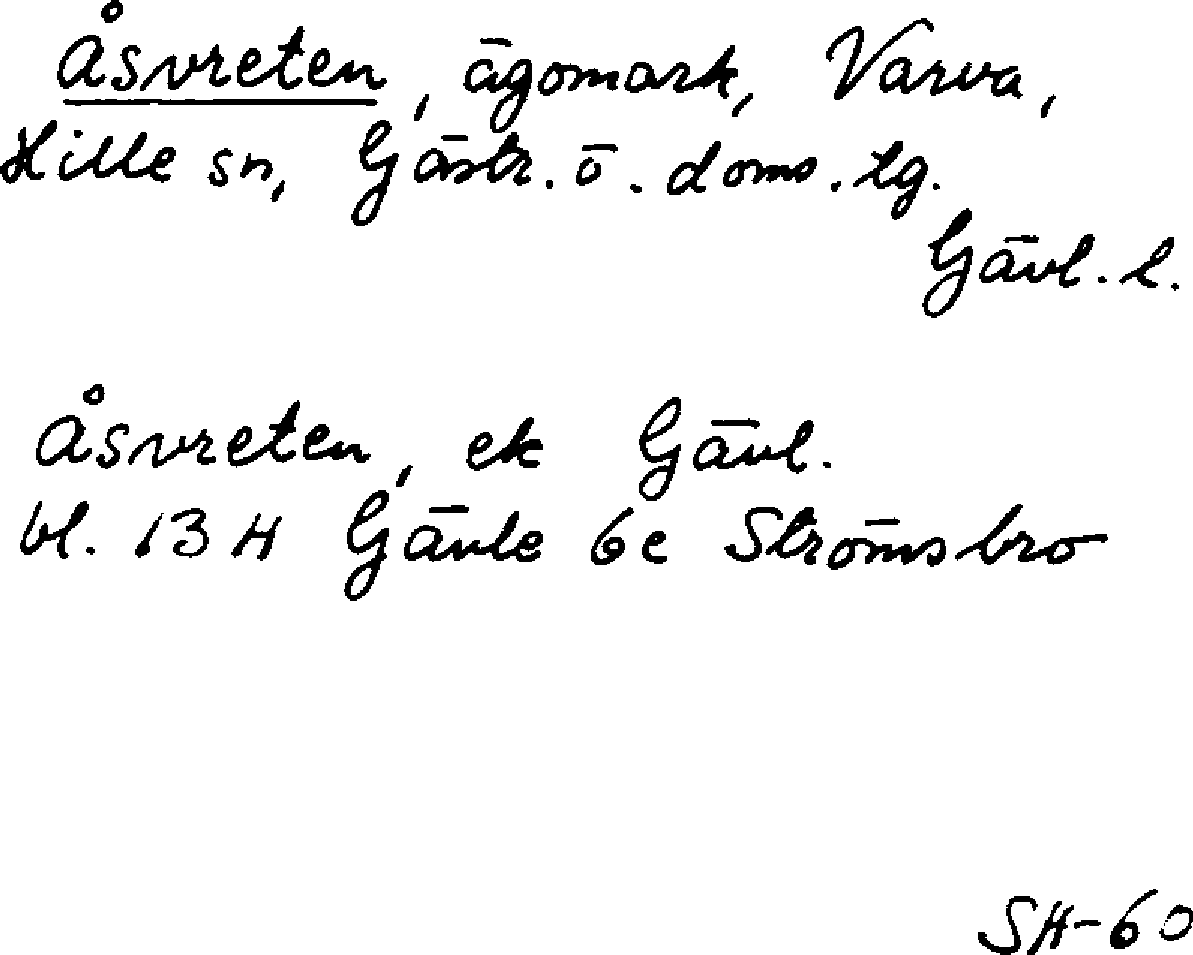 Åsvreten, ägomark, Varva,
Hille sn, Gästr. ö. doms. lg.
Gävl. l.
Åsvreten, ek Gävl.
bl. 13 H Gävle 6c Strömsbro
SH-60